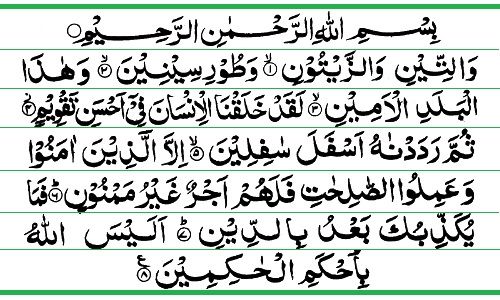 بِسْمِ اللهِ الرَّحْمٰنِ الرَّحِيْمِ ○
وَالتِّيْنِ وَالزَّيْتُوْنِ ۙ﴿۱﴾ وَطُوْرِ سِيْنِيْنَ ۙ﴿۲﴾ وَهٰذَا
الْبَلَدِ الْاَمِيْنِ ۙ﴿۳﴾ لَقَدْ خَلَقْنَا الْاِنْسَانَ فِيْٓ اَحْسَنِ تَقْوِيْمٍ ۫﴿۴﴾
ثُمَّ رَدَدْنٰهُ اَسْفَلَ سٰفِلِيْنَ ۙ﴿۵﴾ اِلَّا الَّذِيْنَ اٰمَنُوْا
وَعَمِلُوا الصّٰلِحٰتِ فَلَهُمْ اَجْرٌ غَيْرُ مَمْنُوْنٍ ؕ﴿۶﴾ فَمَا
يُكَذِّبُكَ بَعْدُ بِالدِّيْنِ ؕ﴿۷﴾ اَلَيْسَ اللهُ
بِاَحْكَمِ الْحٰكِمِيْنَ ﴿۸﴾ ع